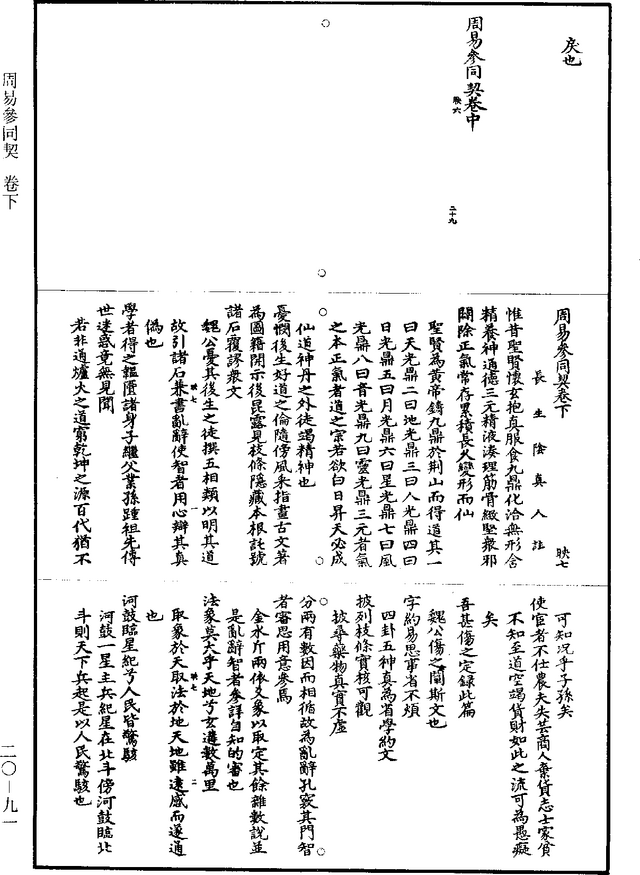 戾也
周易參同契卷中
映六
二十九
周易參同契卷下
映七
長生陰真人註
惟昔聖賢懷玄抱真服食九鼎化洽無形舍
精養神通德三元精液湊理筋骨緻堅衆邪
闢除正氣常存累積長久變形而仙
聖賢為黃帝鑄九鼎於荆山而得道其一
曰天光鼎二曰地光鼎三曰人光鼎四曰
日光鼎五曰月光鼎六曰星光鼎七曰風
光鼎八曰音光鼎九曰靈光鼎三元者氣
之本正氣者道之宗若欲白日昇天必成
仙道神丹之外徒竭精神也
憂憫後生好道之倫隨傍風采指畫古文著
為圖籍開示後昆露見枝條隱藏本根託號
諸石覆謬衆文
魏公憂其後生之徒撰五相類以明其道
故引諸石兼書亂辭使智者用心辯其真
偽也
映七
一
學者得之韞匱諸身子繼父業孫踵祖先傳
世迷惑竟無見聞
若非道爐火之道窮乾坤之源百代猶不
可知况乎子孫矣
使官者不仕農夫失芸商人棄貨志士家貧
不知至道空竭貨財如此之流可為愚癡
矣
吾甚傷之定録此篇
魏公傷之闡斯文也
字約易思事省不煩
四卦五神真為省學約文
披列枝條實核可觀
披尋藥物真實不虛
分兩有數因而相循故為亂辭孔竅其門智
者審思用意參焉
金水斤兩依爻象以取定其餘雜數說並
是亂辭智者參詳自知的審也
法象莫大乎天地兮玄溝數萬里
取象於天取法於地天地雖遠感而遂通
也
映七
二
河鼓臨星紀兮人民皆驚駭
河鼓一星主兵紀星在北斗傍河鼓臨北
斗則天下兵起是以人民驚駭也
周易參同契 卷下
二〇-九一